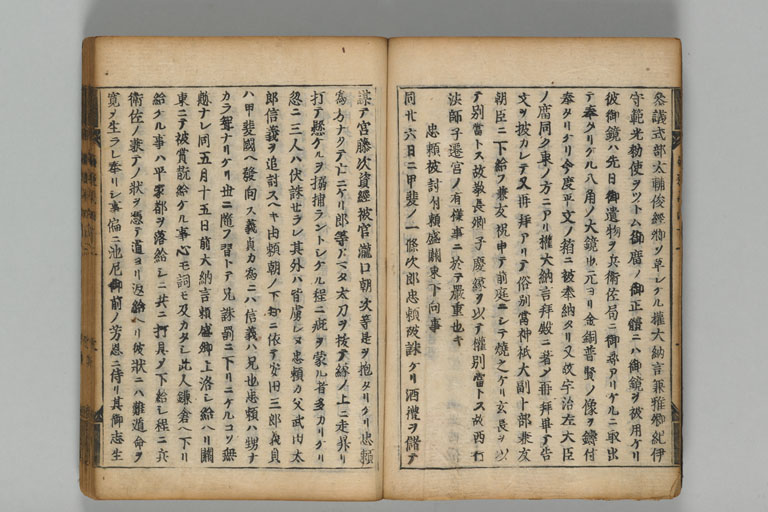 参議式部太輔俊経卿ヲ草シケル權大納言兼雅卿紀伊
守範光勅使ヲツトム御廟ノ御正體ニハ御鏡ヲ被用ケリ
彼御鏡ハ先日御遺物ヲ兵衛佐局ニ御尋アリケルニ取出
テ奉タリケル八角ノ大鏡也元ヨリ金銅普賢ノ像ヲ鑄付
奉タリケリ今度平文ノ箱ニ被奉納タリ又故宇治左大臣
ノ廟同ク東ノ方ニアリ權大納言拜殿ニ着テ再拜畢テ告
文ヲ披カレテ又再拜アリテ俗別當神祇大副卜部兼友
朝臣ニ下給フ兼友祝申テ前庭ニシテ燒之ケリ玄長ヲ以
テ別當トス故教長卿ノ子慶縁ヲ以テ權別當トス故西行
法師子遷宮ノ有様事ニ於テ嚴重也キ
忠頼被討付頼盛關東下向事
同廿六日ニ甲斐ノ一條次郎忠頼被誅ケリ酒禮ヲ儲テ
謀テ宮藤次資經被官瀧口朝次等是ヲ抱タリケリ忠頼
為方ナクテ亡ニケリ郎等アマタ太刀ヲ抜テ縁ノ上ニ走昇リ
打テ懸ケルヲ搦捕ラントシケル程ニ疵ヲ蒙ル者多カリケリ
忽ニ三人ハ伏誅セラレ其外ハ皆虜レヌ忠頼カ父武田太
郎信義ヲ追討スヘキ由頼朝ノ下知ニ依テ安田三郎義貞
ハ甲斐國ヘ發向ス義貞カ為ニハ信義ハ兄也忠頼ハ甥ナ
カラ聟ナリケリ世ニ隨フ習トテ兄誅罰ニ下リニケルコソ無
慙ナレ同五月十五日前大納言頼盛卿上洛シ給ヘリ關
東ニテ被賞翫給ケル事心モ詞モ及カタシ此人鎌倉ヘ下リ
給ケル事ハ平家都ヲ落給シニ共ニ打具メ下給シ程ニ兵
衛佐ノ兼テノ狀ヲ憑テ道ヨリ返給ヘリ彼狀ニハ難遁命ヲ
寛メ生ラレ奉リシ事偏ニ池尼御前ノ芳恩ニ侍リ其御志生